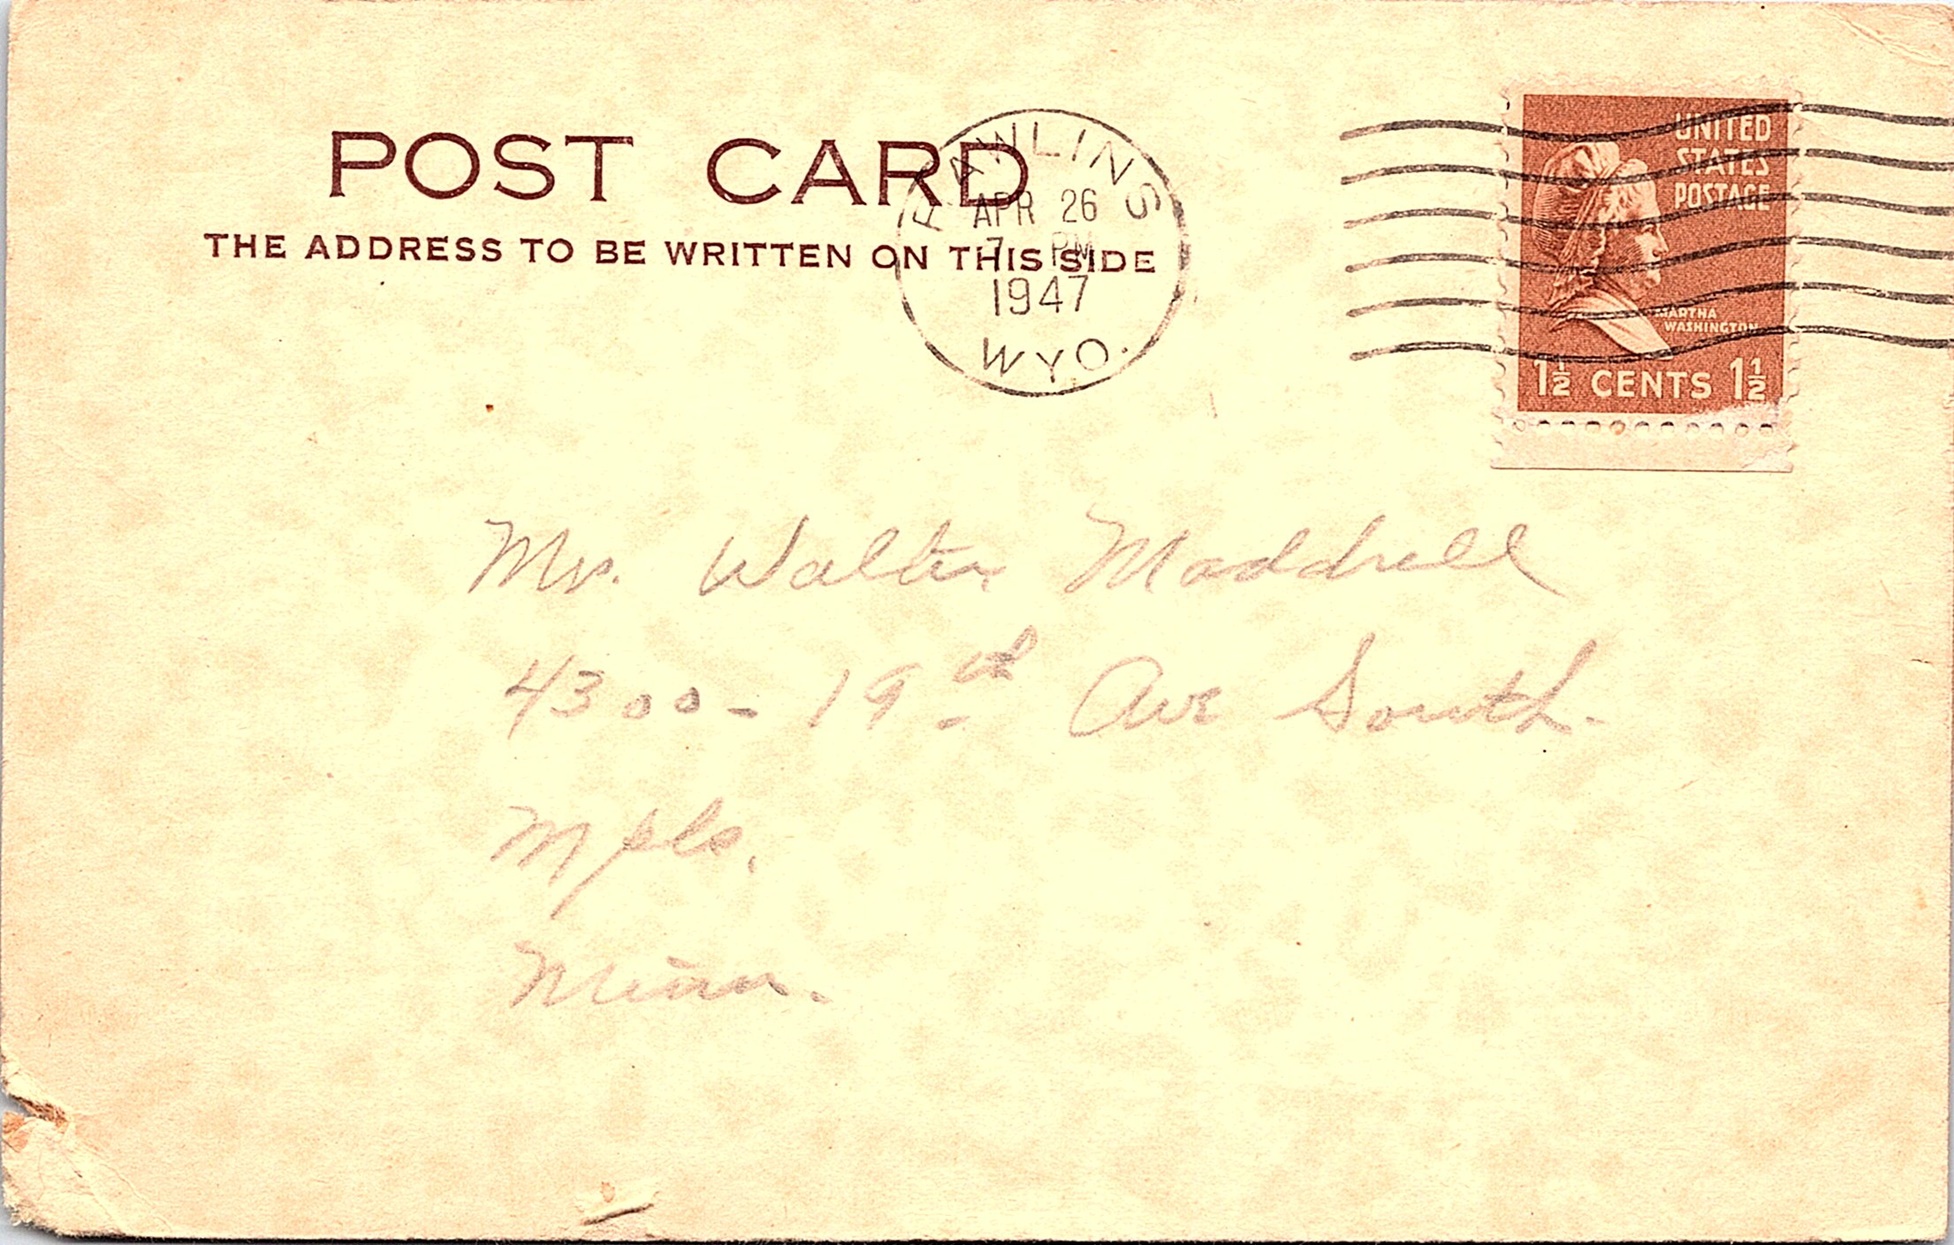 POST CARD
THE ADDRESS TO BE WRITTEN ON THIS SIDE
RAWLINS
APR 26
7 PM
1947
WYO.
UNITED
STATES
POSTAGE
MARTHA
WASHINGTON
1½ CENTS 1½
Mr. Walter Maddrell
4300 - 19th Ave South.
Mpls.
Minn.